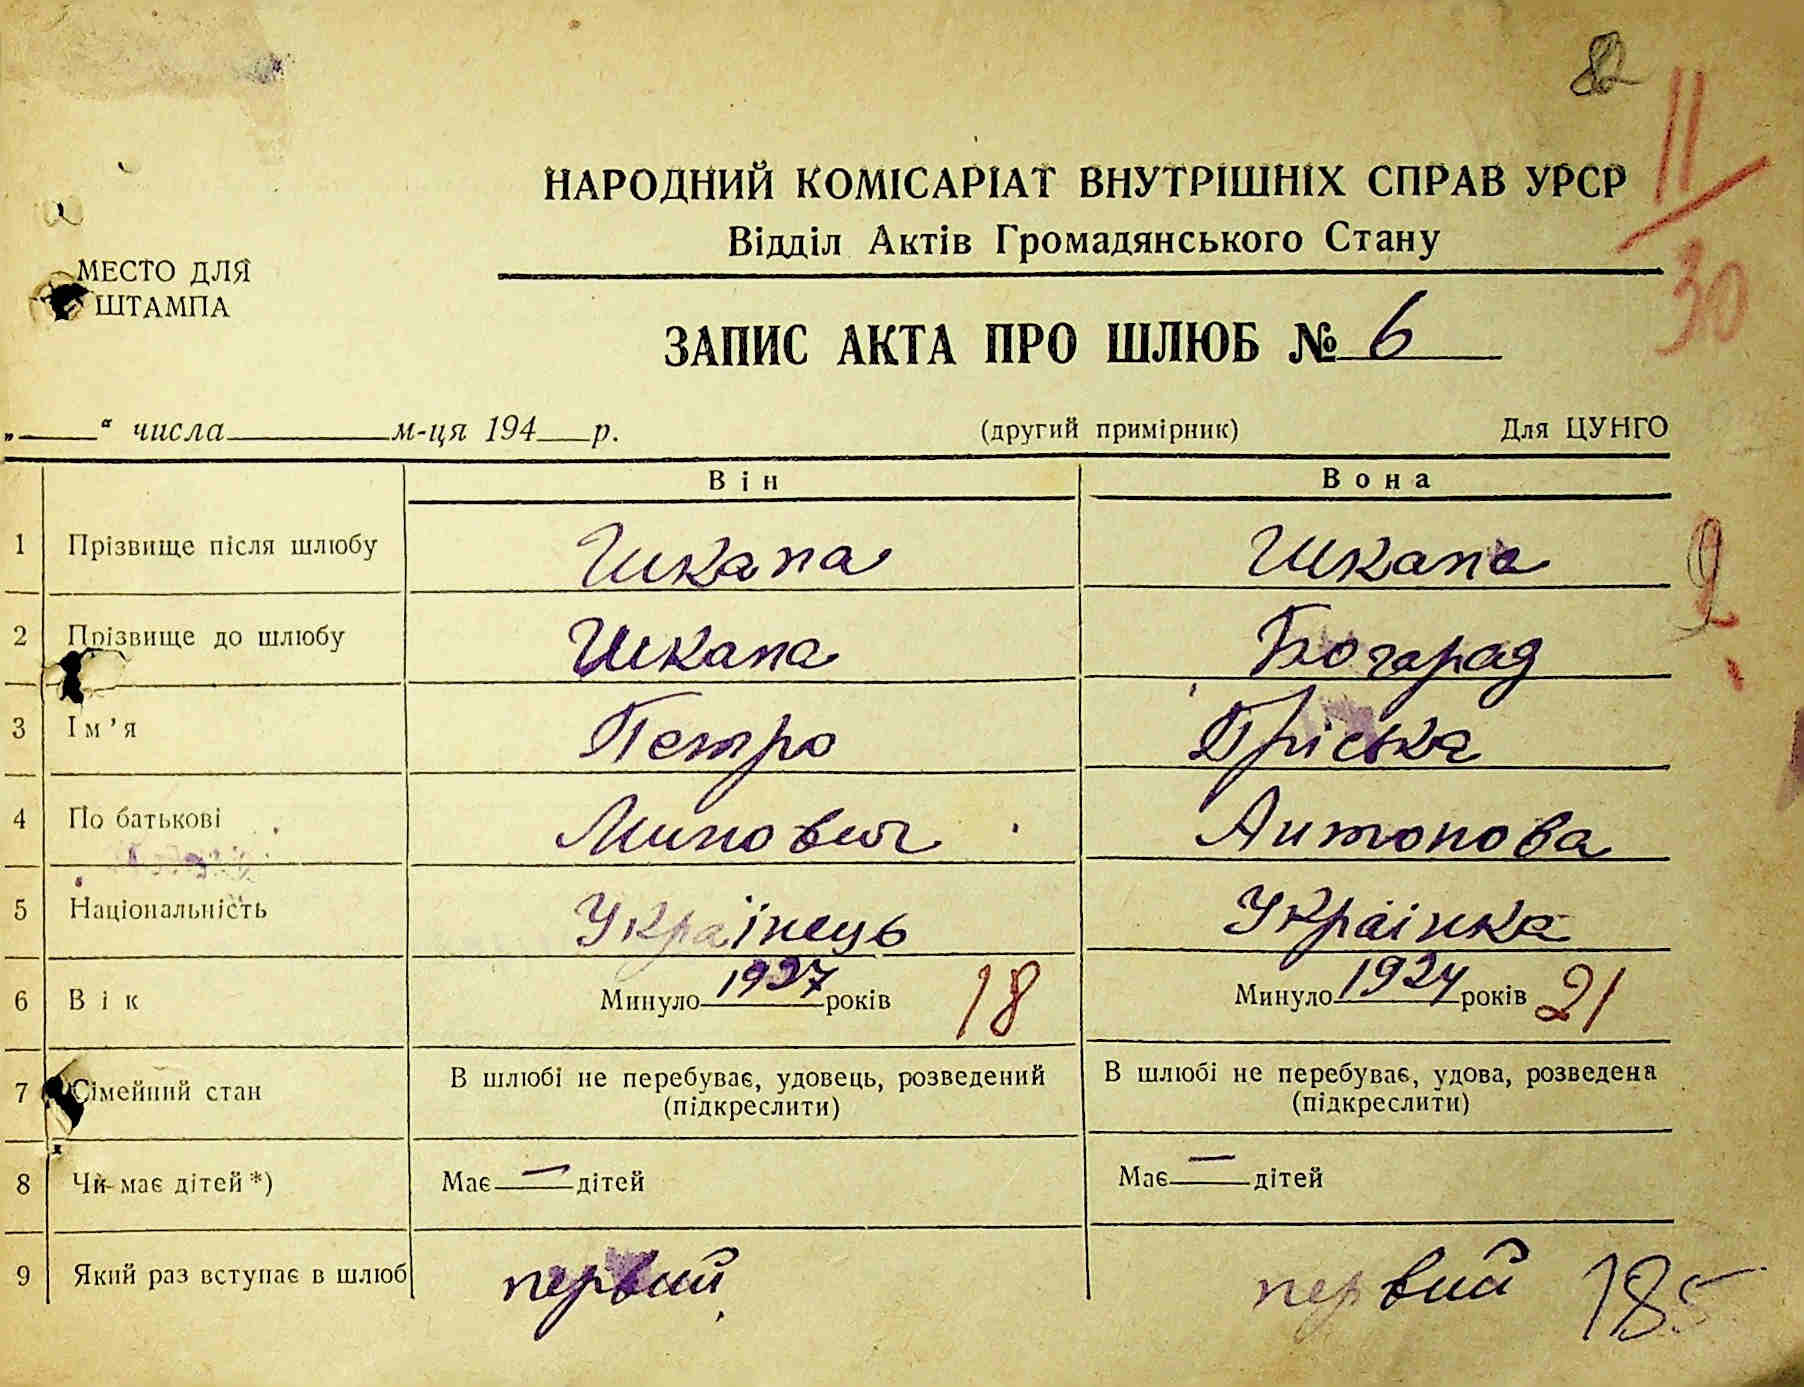 82
11/30
НАРОДНИЙ КОМІСАРІАТ ВНУТРІШНІХ СПРАВ УРСР
Відділ Актів Громадянського Стану
МЕСТО ДЛЯ
ШТАМПА
ЗАПИС АКТА ПРО ШЛЮБ № 6
„____“ числа________м-ця 194__р. (другий примірник) Для ЦУНГО
Він Вона
1 Прізвище після шлюбу Шкапа Шкапа
2 Прізвище до шлюбу Шкапа Богорад
3 Ім'я Петро Пріська
4 По батькові Минович Антонова
5 Національність Українець Українка
6 Вік Минуло 1927 років 18 Минуло 1924 років 21
7 Сімейний стан В шлюбі не перебуває, удовець, розведений В шлюбі не перебуває, удова, розведена
(підкреслити) (підкреслити)
8 Чи має дітей *) Має — дітей Має — дітей
9 Який раз вступає в шлюб первий первий
185